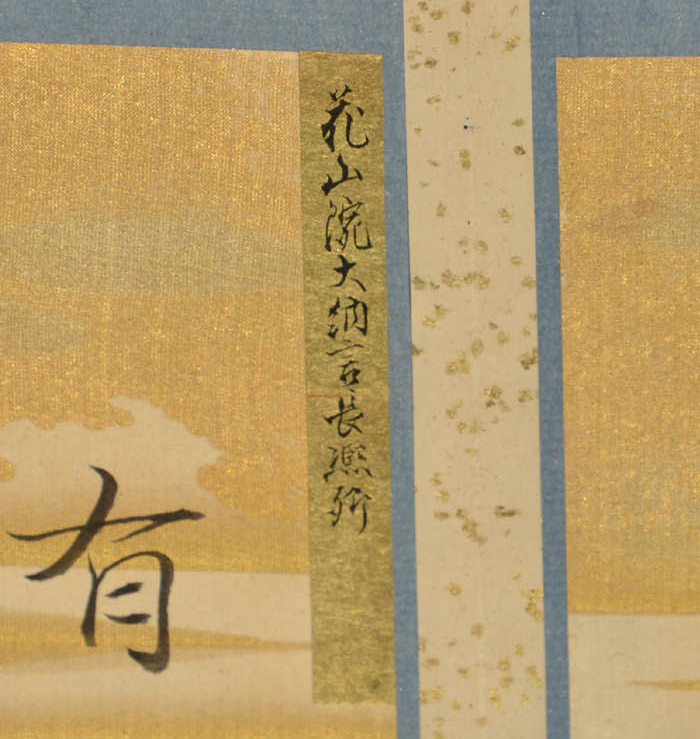 花山院大納言長熙卿
有